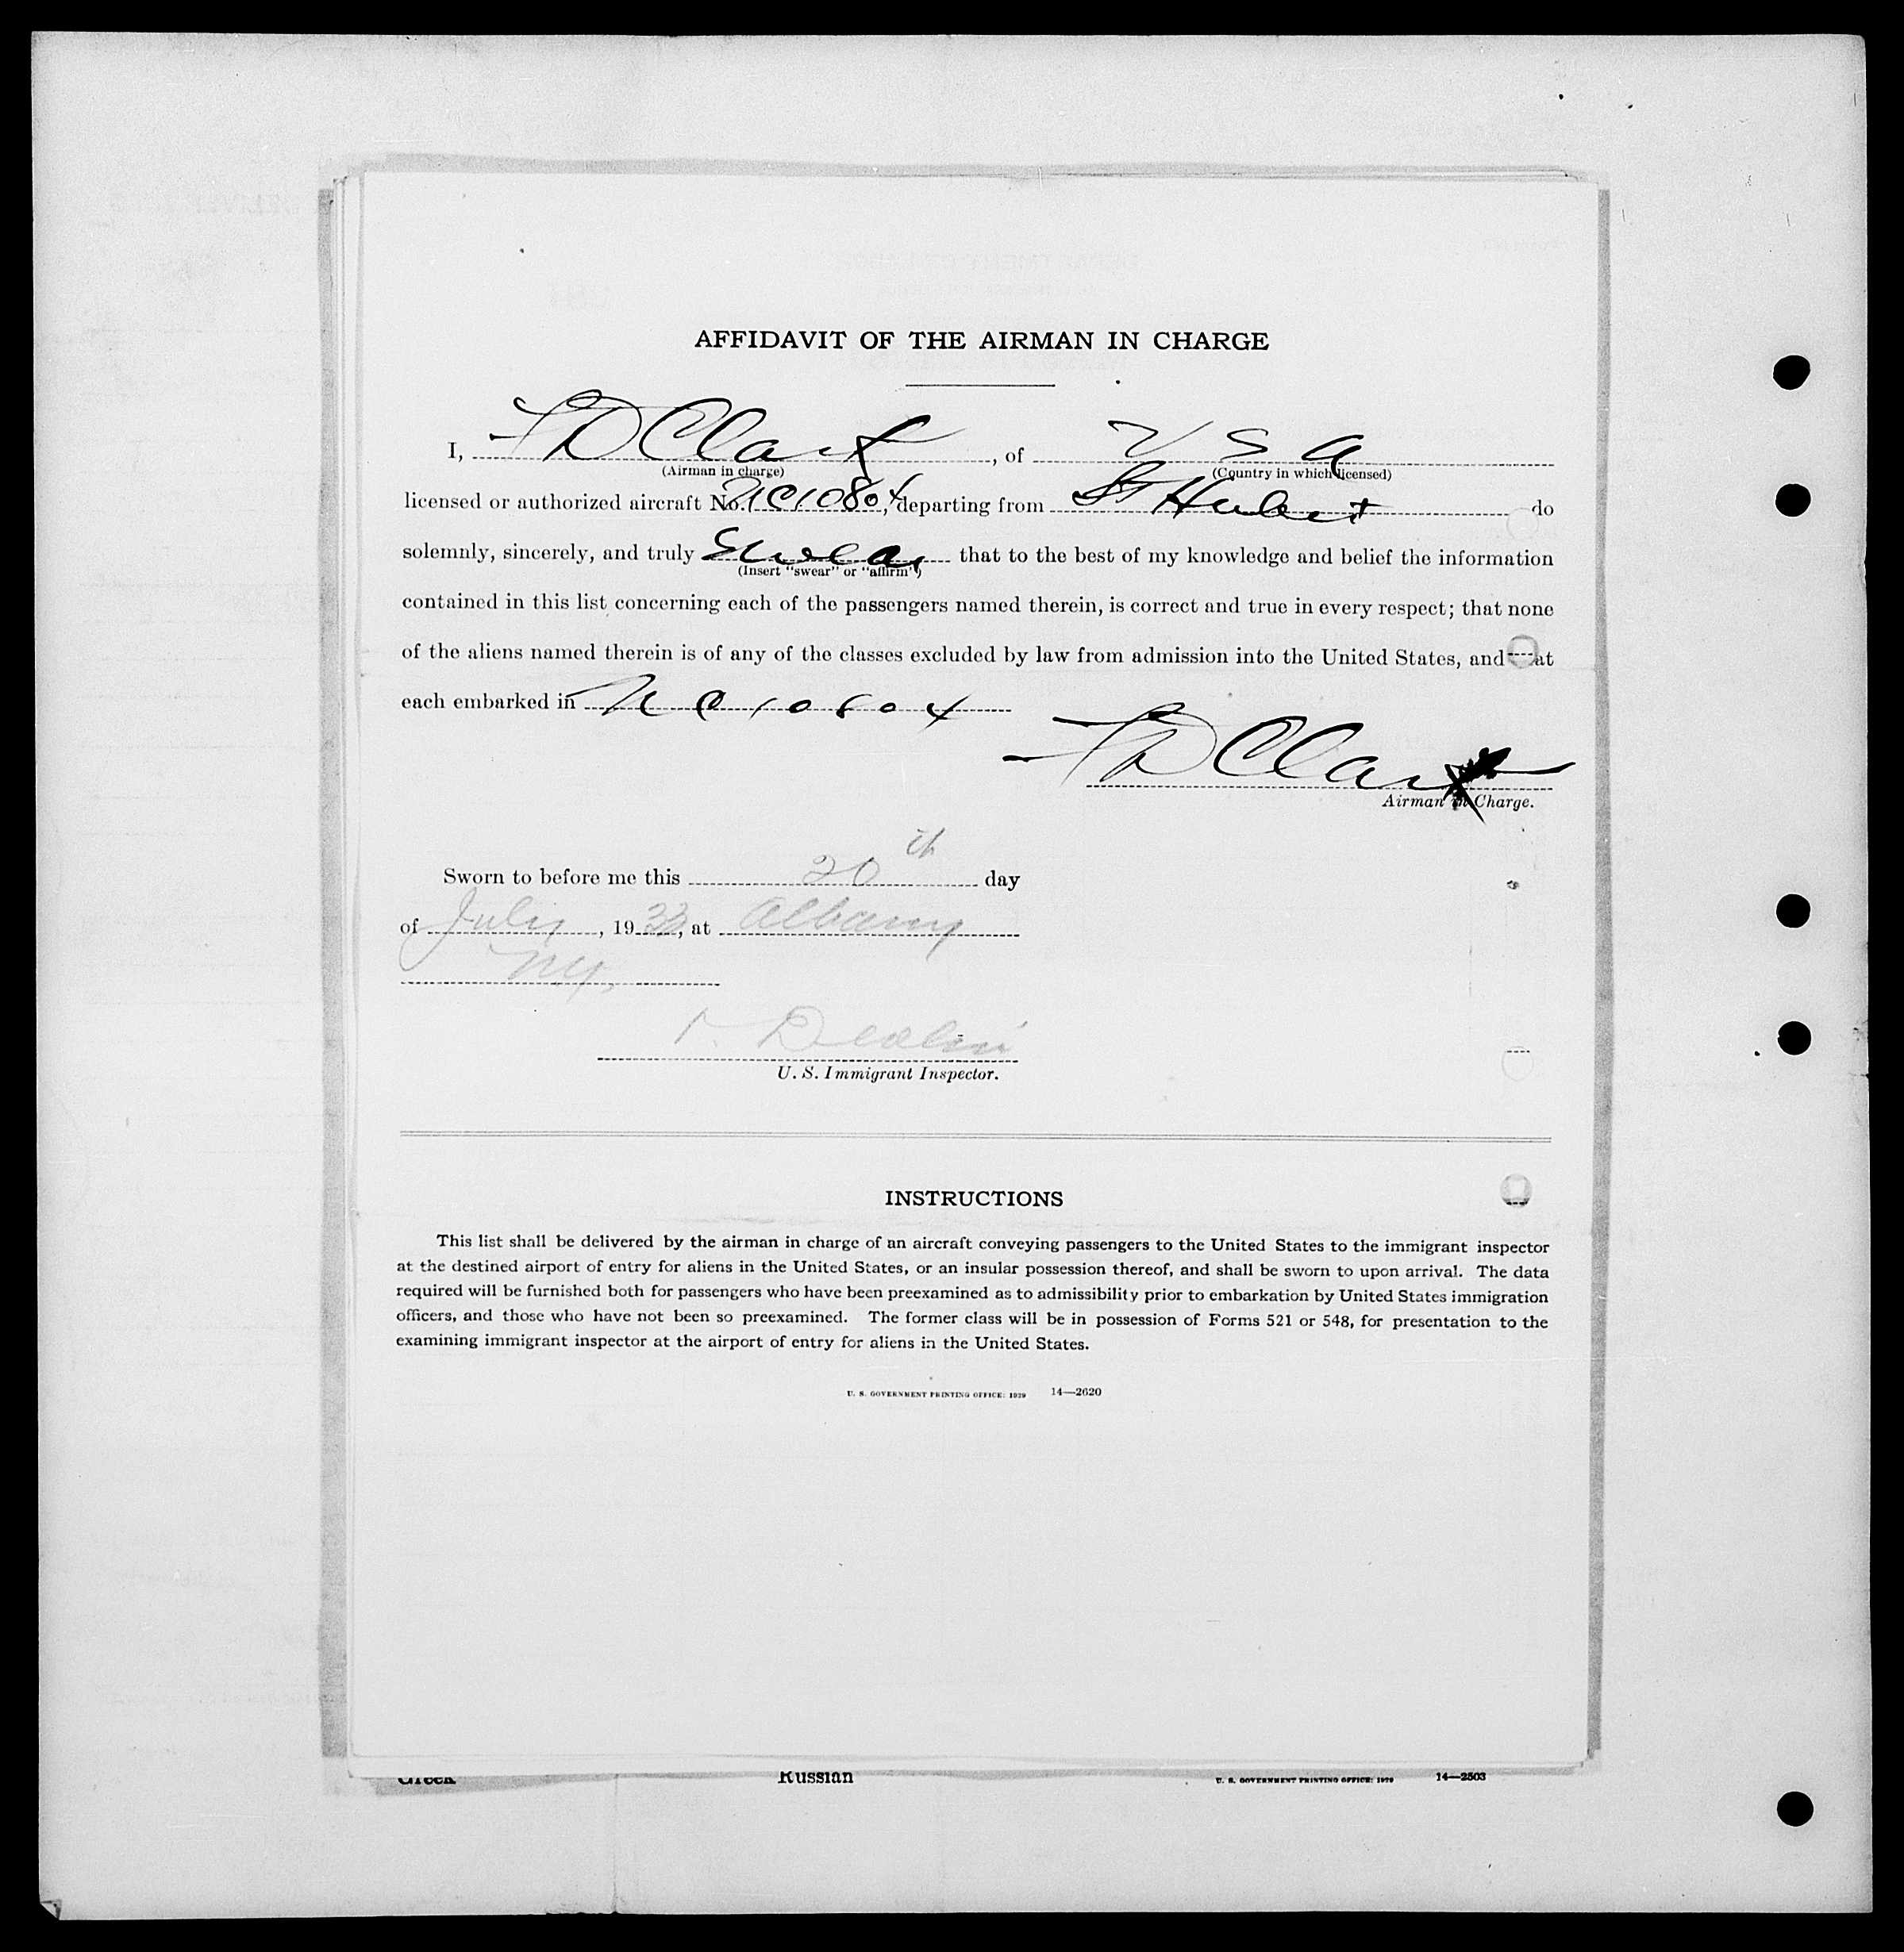 AFFIDAVIT OF THE AIRMAN IN CHARGE
I, FD Clark, of U S A
(Airman in charge) (Country in which licensed)
licensed or authorized aircraft No. NC10804, departing from St Hubert do
solemnly, sincerely, and truly Swear that to the best of my knowledge and belief the information
(Insert "swear" or "affirm")
contained in this list concerning each of the passengers named therein, is correct and true in every respect; that none
of the aliens named therein is of any of the classes excluded by law from admission into the United States, and at
each embarked in NC10804
FD Clark
Airman in Charge.
Sworn to before me this 20th day
of July, 1933, at Albany
NY.
U. S. Immigrant Inspector.
INSTRUCTIONS
This list shall be delivered by the airman in charge of an aircraft conveying passengers to the United States to the immigrant inspector
at the destined airport of entry for aliens in the United States, or an insular possession thereof, and shall be sworn to upon arrival. The data
required will be furnished both for passengers who have been preexamined as to admissibility prior to embarkation by United States immigration
officers, and those who have not been so preexamined. The former class will be in possession of Forms 521 or 548, for presentation to the
examining immigrant inspector at the airport of entry for aliens in the United States.
U. S. GOVERNMENT PRINTING OFFICE: 1929 14—2620
Greek Russian U. S. GOVERNMENT PRINTING OFFICE: 1929 14—2503